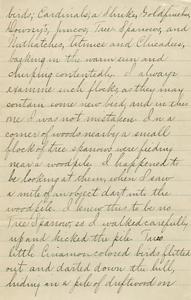 birds; Cardinals, a Shrike, Goldfinches,
Juncos, Tree Sparrows, and
Nuthatches, Titmice and Chicadees,
basking in the warm sun and
chirping contentedly. I always
examine such flocks, as they may
contain some new bird, and in this
one I was not mistaken. In a
corner of woods nearby a small
flock of tree sparrows were feeding
near a woodpile. I happened to
be looking at them, when I saw
a mite of an object dart into the
woodpile. I knew this to be no
Tree Sparrow, so I walked carefully
up and kicked the pile. Two
little cinnamon colored birds flitted
out and darted down the hill,
hiding in a pile of driftwood on